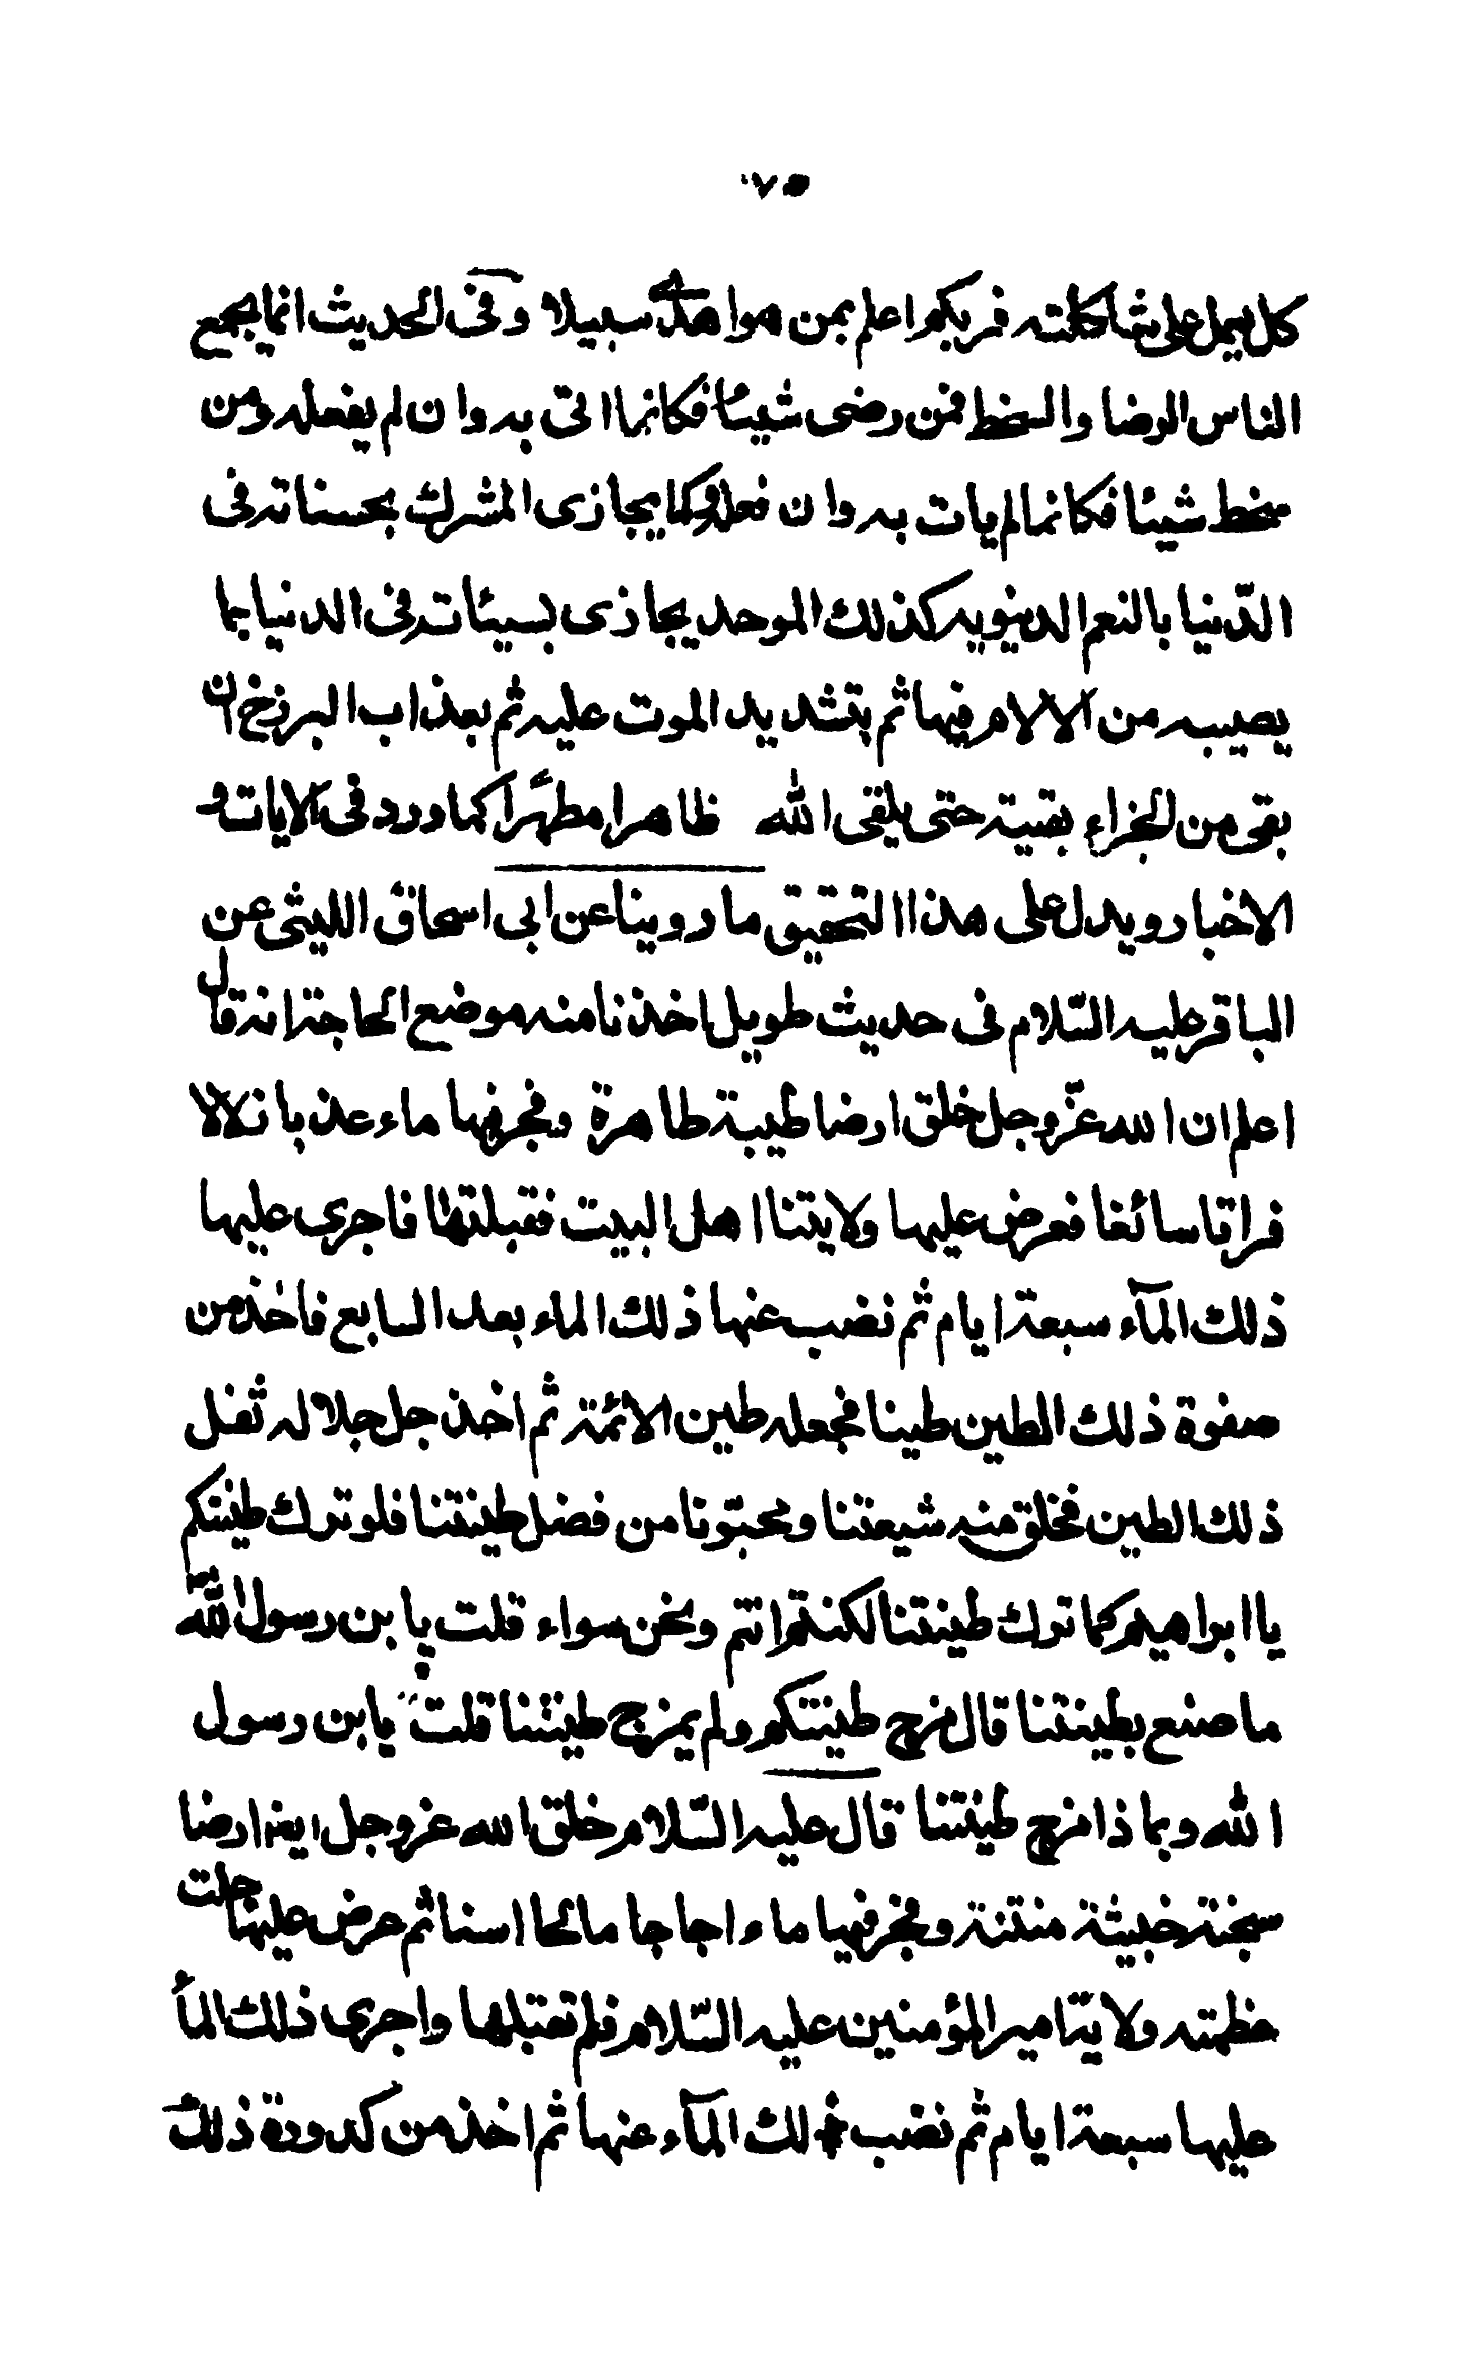 ٧٥
كل يعمل على شاكلته فربكم اعلم بمن هو اهدى سبيلا وفى الحديث انما يجمع
الناس الرضا والسخط فمن رضى شيئا فكانما اتى به وان لم يفعله ومن
سخط شيئا فكانما لم يات به وان فعله وكما يجازى المشرك بحسناته فى
الدّنيا بالنعم الدنيويه كذلك الموحد يجازى بسيئاته فى الدنيا بما
يصيبه من الالام فيها ثم بتشديد الموت عليه ثم بعذاب البرزخ ان
بقى من الجزاء بقية حتى يلقى الله ظاهرا مطهّرا كما ورد فى الايات و
الاخبار ويدل على هذا التحقيق ما روينا عن ابى اسحاق الليثى عن
الباقر عليه السّلام فى حديث طويل اخذنا منه موضع الحاجة انه قال
اعلم ان الله عزّ وجل خلق ارضا طيبة طاهرة وفجر فيها ماء عذبا زلالا
فراتا سائغا فعرض عليها ولايتنا اهل البيت فقبلتها فاجرى عليها
ذلك المآء سبعة ايام ثم نضب عنها ذلك الماء بعد السابع فاخذ من
صفوة ذلك الطين طينا فجعله طين الائمة ثم اخذ جل جلاله ثفل
ذلك الطين فخلق منه شيعتنا ومحبّونا من فضل طينتنا فلو ترك طينتكم
يا ابراهيم كما ترك طينتنا لكنتم انتم ونحن سواء قلت يا بن رسول الله
ما صنع بطينتنا قال مزج طينتكم ولم يمزج طينتنا قلت يا بن رسول
الله وبما ذا مزج طينتنا قال عليه السّلام خلق الله عز وجل ايضا ارضا
سبخة خبيثة منتنة وفجر فيها ماء اجاجا مالحا اسنا ثم عرض عليها جلت
عظمته ولاية امير المؤمنين عليه السّلام فلم تقبلها واجرى ذلك المأ
عليها سبعة ايام ثم نضب ذلك المآء عنها ثم اخذ من كدورة ذلك